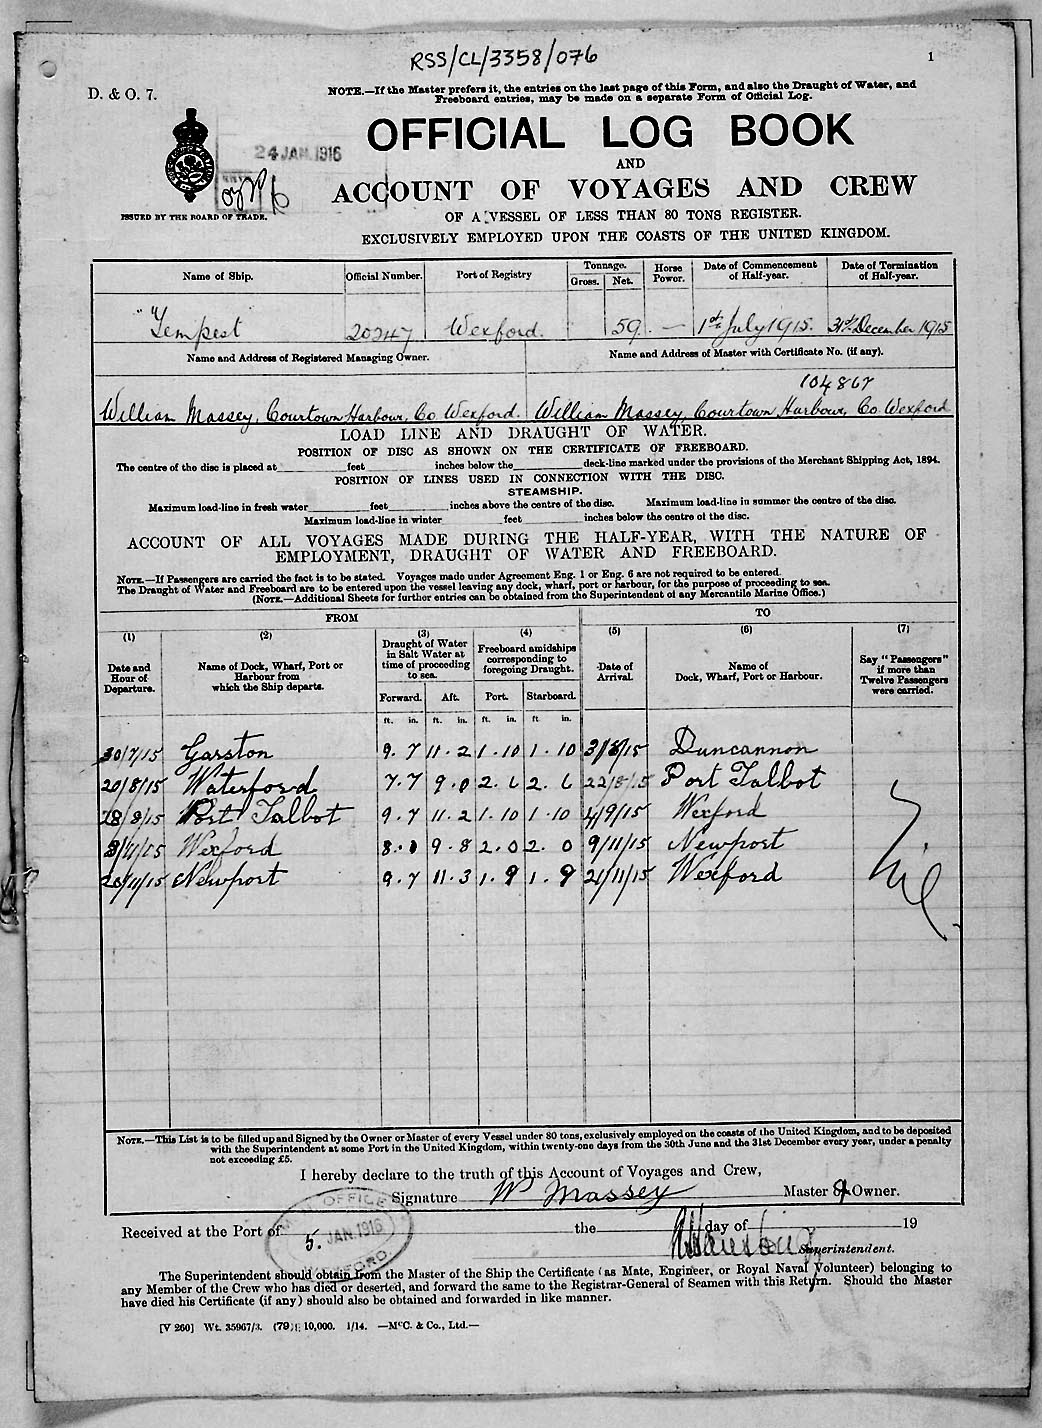 RSS/CL/3358/076
1
D. & O. 7.
NOTE.—If the Master prefers it, the entries on the last page of this Form, and also the Draught of Water, and
Freeboard entries, may be made on a separate Form of Official Log.
24 JAN. 1916
OFFICIAL LOG BOOK
AND
ACCOUNT OF VOYAGES AND CREW
ISSUED BY THE BOARD OF TRADE.
OF A VESSEL OF LESS THAN 80 TONS REGISTER.
EXCLUSIVELY EMPLOYED UPON THE COASTS OF THE UNITED KINGDOM.
Name of Ship. Official Number. Port of Registry Tonnage. Gross. Net. Horse Power. Date of Commencement of Half-year. Date of Termination of Half-year.
"Tempest" 20247 Wexford. 59. — 1st July 1915. 31st December 1915
Name and Address of Registered Managing Owner. Name and Address of Master with Certificate No. (if any).
104867
William Massey, Courtown Harbour, Co. Wexford. William Massey, Courtown Harbour, Co. Wexford
LOAD LINE AND DRAUGHT OF WATER.
POSITION OF DISC AS SHOWN ON THE CERTIFICATE OF FREEBOARD.
The centre of the disc is placed at feet inches below the deck-line marked under the provisions of the Merchant Shipping Act, 1894.
POSITION OF LINES USED IN CONNECTION WITH THE DISC.
STEAMSHIP.
Maximum load-line in fresh water feet inches above the centre of the disc. Maximum load-line in summer the centre of the disc.
Maximum load-line in winter feet inches below the centre of the disc.
ACCOUNT OF ALL VOYAGES MADE DURING THE HALF-YEAR, WITH THE NATURE OF
EMPLOYMENT, DRAUGHT OF WATER AND FREEBOARD.
NOTE.—If Passengers are carried the fact is to be stated. Voyages made under Agreement Eng. 1 or Eng. 6 are not required to be entered.
The Draught of Water and Freeboard are to be entered upon the vessel leaving any dock, wharf, port or harbour, for the purpose of proceeding to sea.
(NOTE.—Additional Sheets for further entries can be obtained from the Superintendent of any Mercantile Marine Office.)
FROM TO
(1) (2) (3) (4) (5) (6) (7)
Date and Hour of Departure. Name of Dock, Wharf, Port or Harbour from which the Ship departs. Draught of Water in Salt Water at time of proceeding to sea. Freeboard amidships corresponding to foregoing Draught. Date of Arrival. Name of Dock, Wharf, Port or Harbour. Say "Passengers" if more than Twelve Passengers were carried.
Forward. Aft. Port. Starboard.
ft. in. ft. in. ft. in. ft in.
30/7/15 Garston 9.7 11.2 1.10 1.10 31/8/15 Duncannon
20/8/15 Waterford 7.7 9.0 2.6 2.6 22/8/15 Port Talbot
28/8/15 Port Talbot 9.7 11.2 1.10 1.10 4/9/15 Wexford
8/11/15 Wexford 8.0 9.8 2.0 2.0 9/11/15 Newport
20/11/15 Newport 9.7 11.3 1.9 1.9 21/11/15 Wexford
Nil
NOTE.—This List is to be filled up and Signed by the Owner or Master of every Vessel under 80 tons, exclusively employed on the coasts of the United Kingdom, and to be deposited
with the Superintendent at some Port in the United Kingdom, within twenty-one days from the 30th June and the 31st December every year, under a penalty
not exceeding £5.
I hereby declare to the truth of this Account of Voyages and Crew,
Signature Wm Massey Master & Owner.
Received at the Port of the day of 19
5. JAN. 1916
Superintendent.
The Superintendent should obtain from the Master of the Ship the Certificate (as Mate, Engineer, or Royal Naval Volunteer) belonging to
any Member of the Crew who has died or deserted, and forward the same to the Registrar-General of Seamen with this Return. Should the Master
have died his Certificate (if any) should also be obtained and forwarded in like manner.
[V 260] Wt. 35967/3. (79) 10,000. 1/14. —McC. & Co., Ltd.—